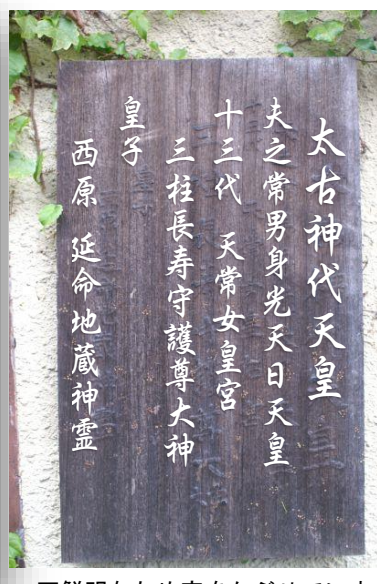 太古神代天皇
夫之常男身光天日天皇
十三代 天常女皇宮
三柱長寿守護尊大神
皇子
西原 延命地蔵神霊